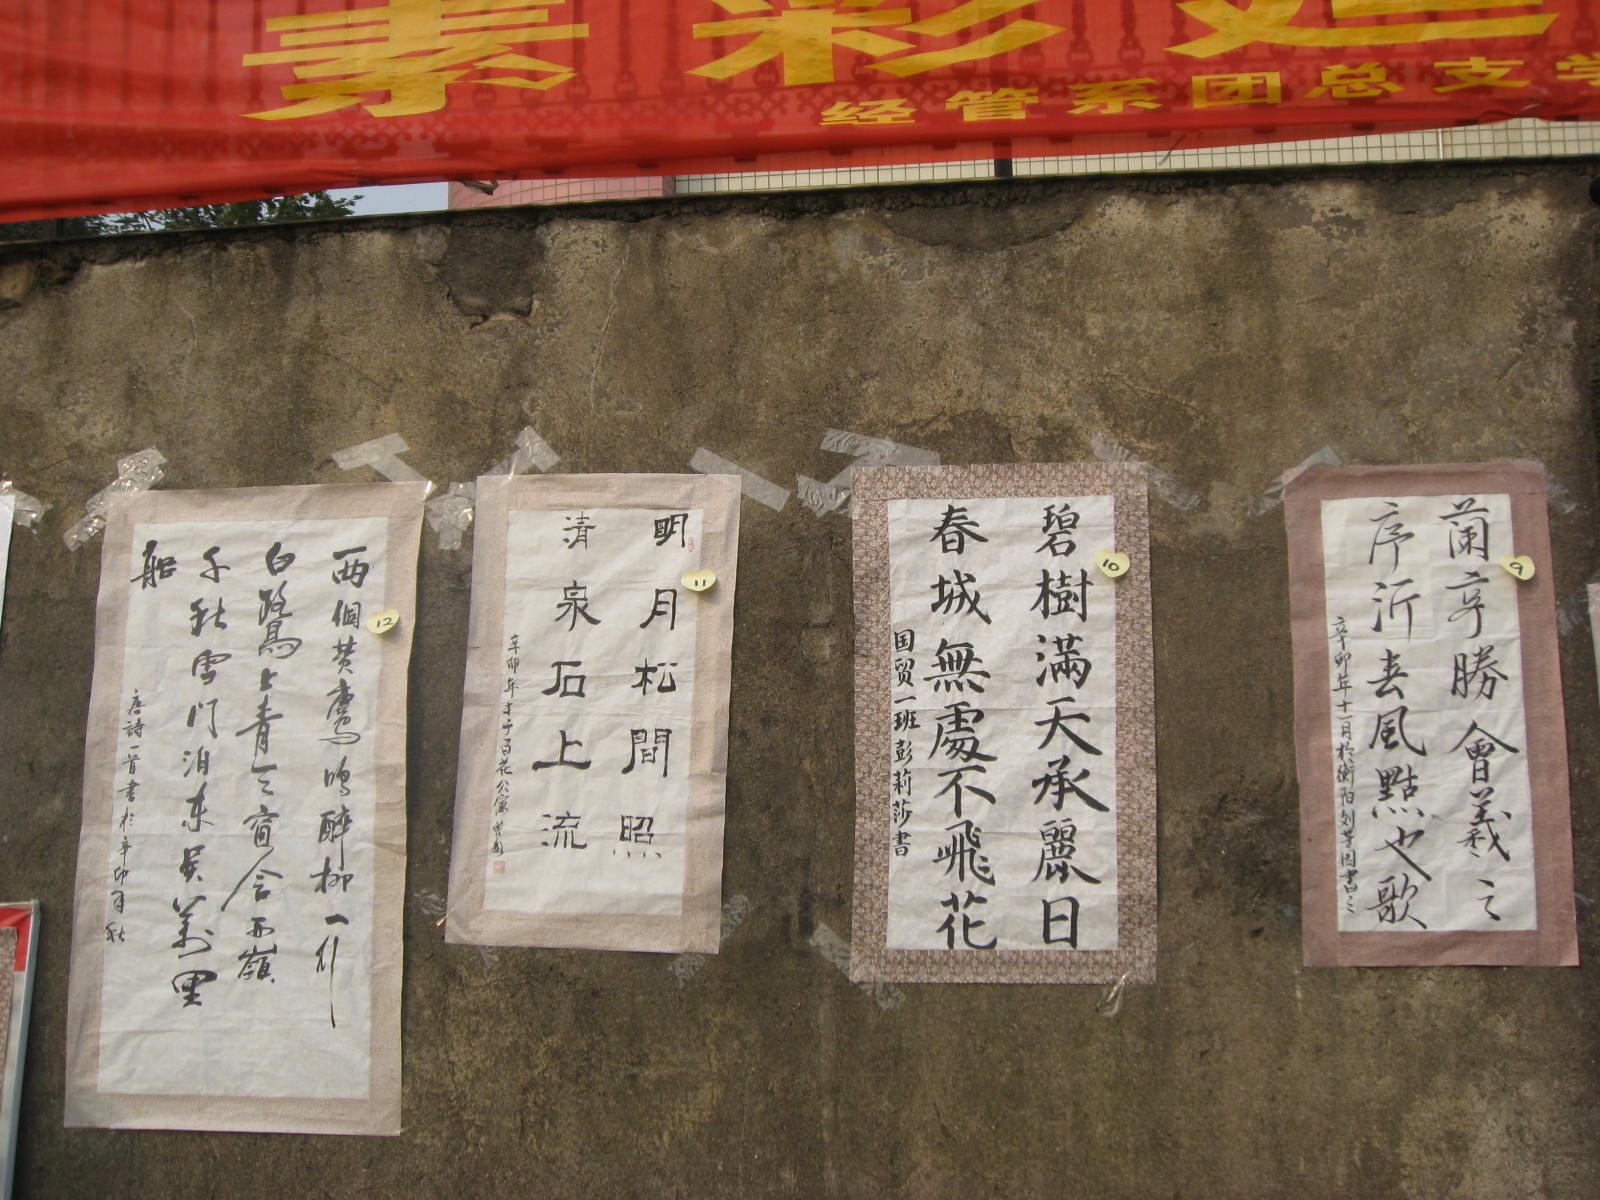 素彩
经管系团总支学
蘭亭勝會羲之
序沂春風點也歌
辛卯年十一月於衡阳
9
碧樹滿天承麗日
春城無處不飛花
国贸一班彭莉莎書
10
明月松間照
清泉石上流
辛卯年 百花公寓
11
两個黄鸝鳴醉柳一行
白鷺上青天窗含西嶺
千秋雪门泊东吴萬里
船
唐詩一首書於辛卯年秋
12